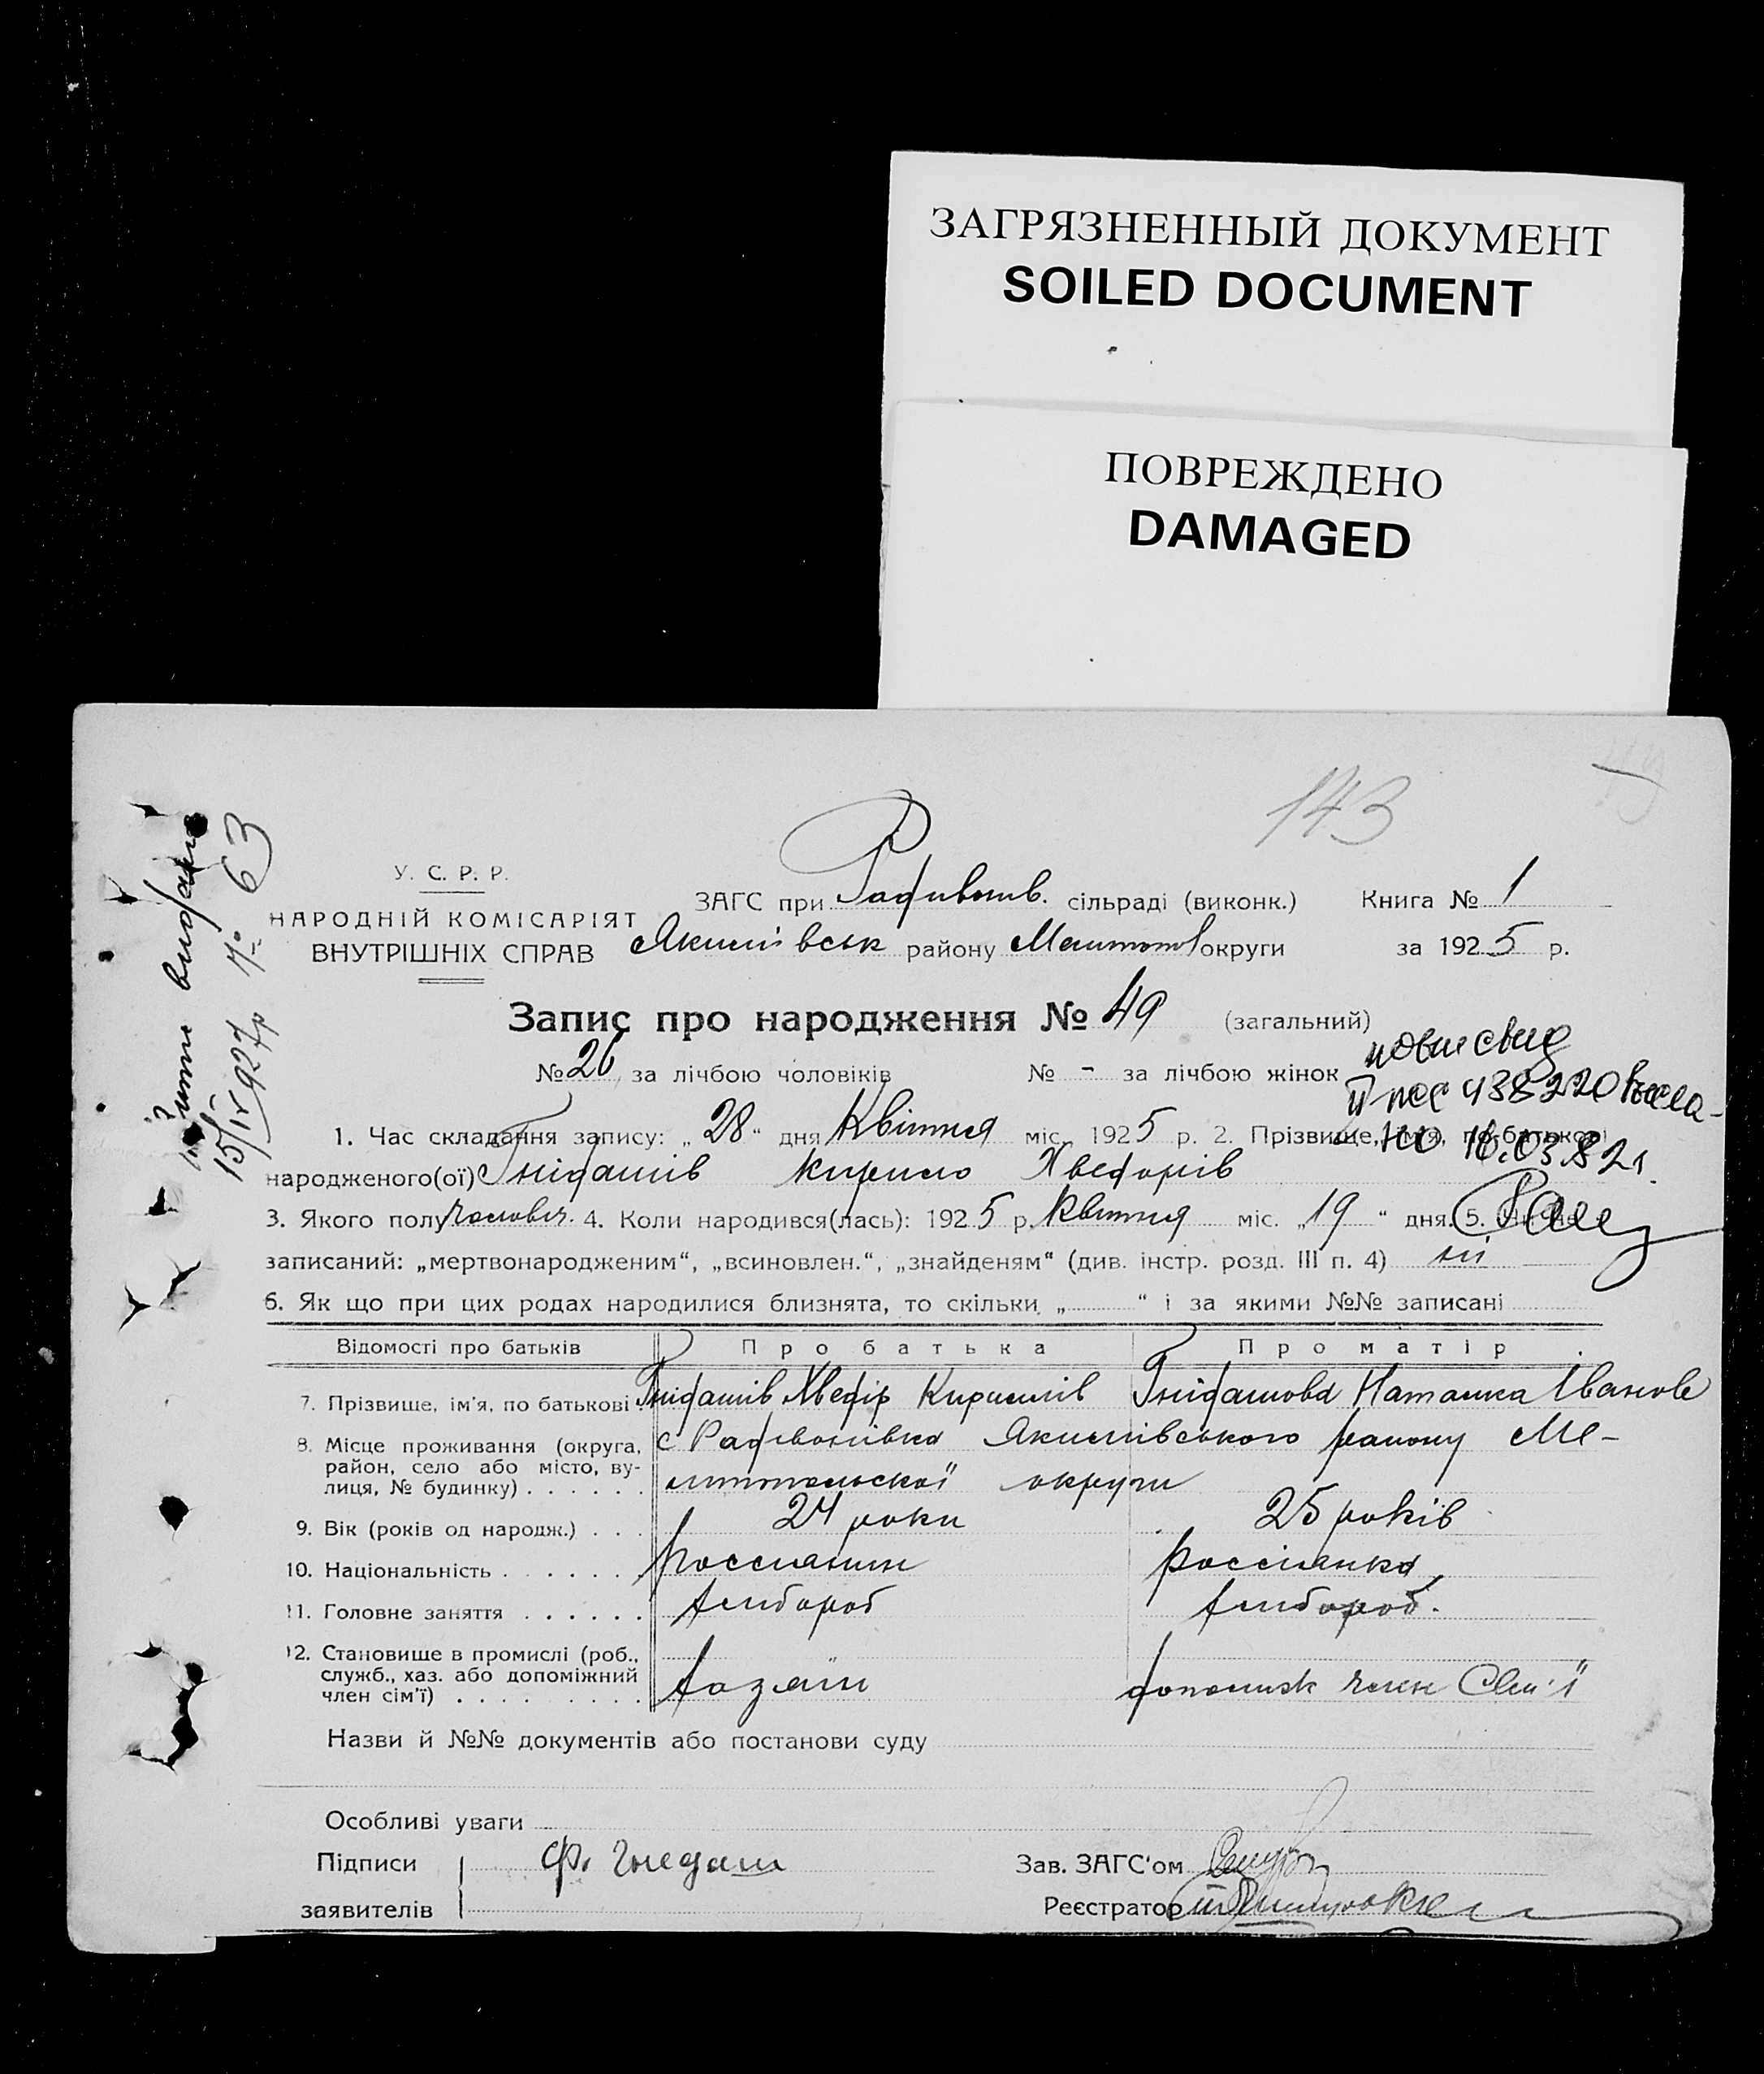 ЗАГРЯЗНЕННЫЙ ДОКУМЕНТ
SOILED DOCUMENT
ПОВРЕЖДЕНО
DAMAGED
143
У. С. Р. Р.
НАРОДНІЙ КОМІСАРІЯТ
ВНУТРІШНІХ СПРАВ
ЗАГС при Радивонів. сільраді (виконк.) Книга № 1
Якимівськ району Мелитопол округи за 1925 р.
Запис про народження № 49 (загальний)
№ 26 за лічбою чоловіків № - за лічбою жінок
видано
15/IV 927р № 63
повт свид
438220 выда-
но 16.03.82г.
1. Час складання запису: „28" дня Квітня міс. 1925 р. 2. Прізвище, ім'я, по-батькові
народженого(ої) Гнідашів Кирило Хведорів
3. Якого полу чоловіч. 4. Коли народився(лась): 1925 р. Квітня міс. „19" дня. 5.
записаний: „мертвонародженим", „всиновлен.", „знайденям" (див. інстр. розд. III п. 4) ні
6. Як що при цих родах народилися близнята, то скільки „ " і за якими №№ записані
Відомості про батьків Про батька Про матір
7. Прізвище, ім'я, по батькові Гнідашів Хведір Кирилів Гнідашова Наталка Іванов
8. Місце проживання (округа, район, село або місто, вулиця, № будинку) с Радивонівка Якимівського району Ме-
литопольскої округи
9. Вік (років од народж.) 24 роки 25 років
10. Національність россиянин россіянка
11. Головне заняття хлібороб хлібороб.
12. Становище в промислі (роб., служб., хаз. або допоміжний член сім'ї) хазяїн допоміж член сем'ї
Назви й №№ документів або постанови суду
Особливі уваги
Підписи Ф. Гнедаш Зав. ЗАГС'ом
заявителів Реєстратор